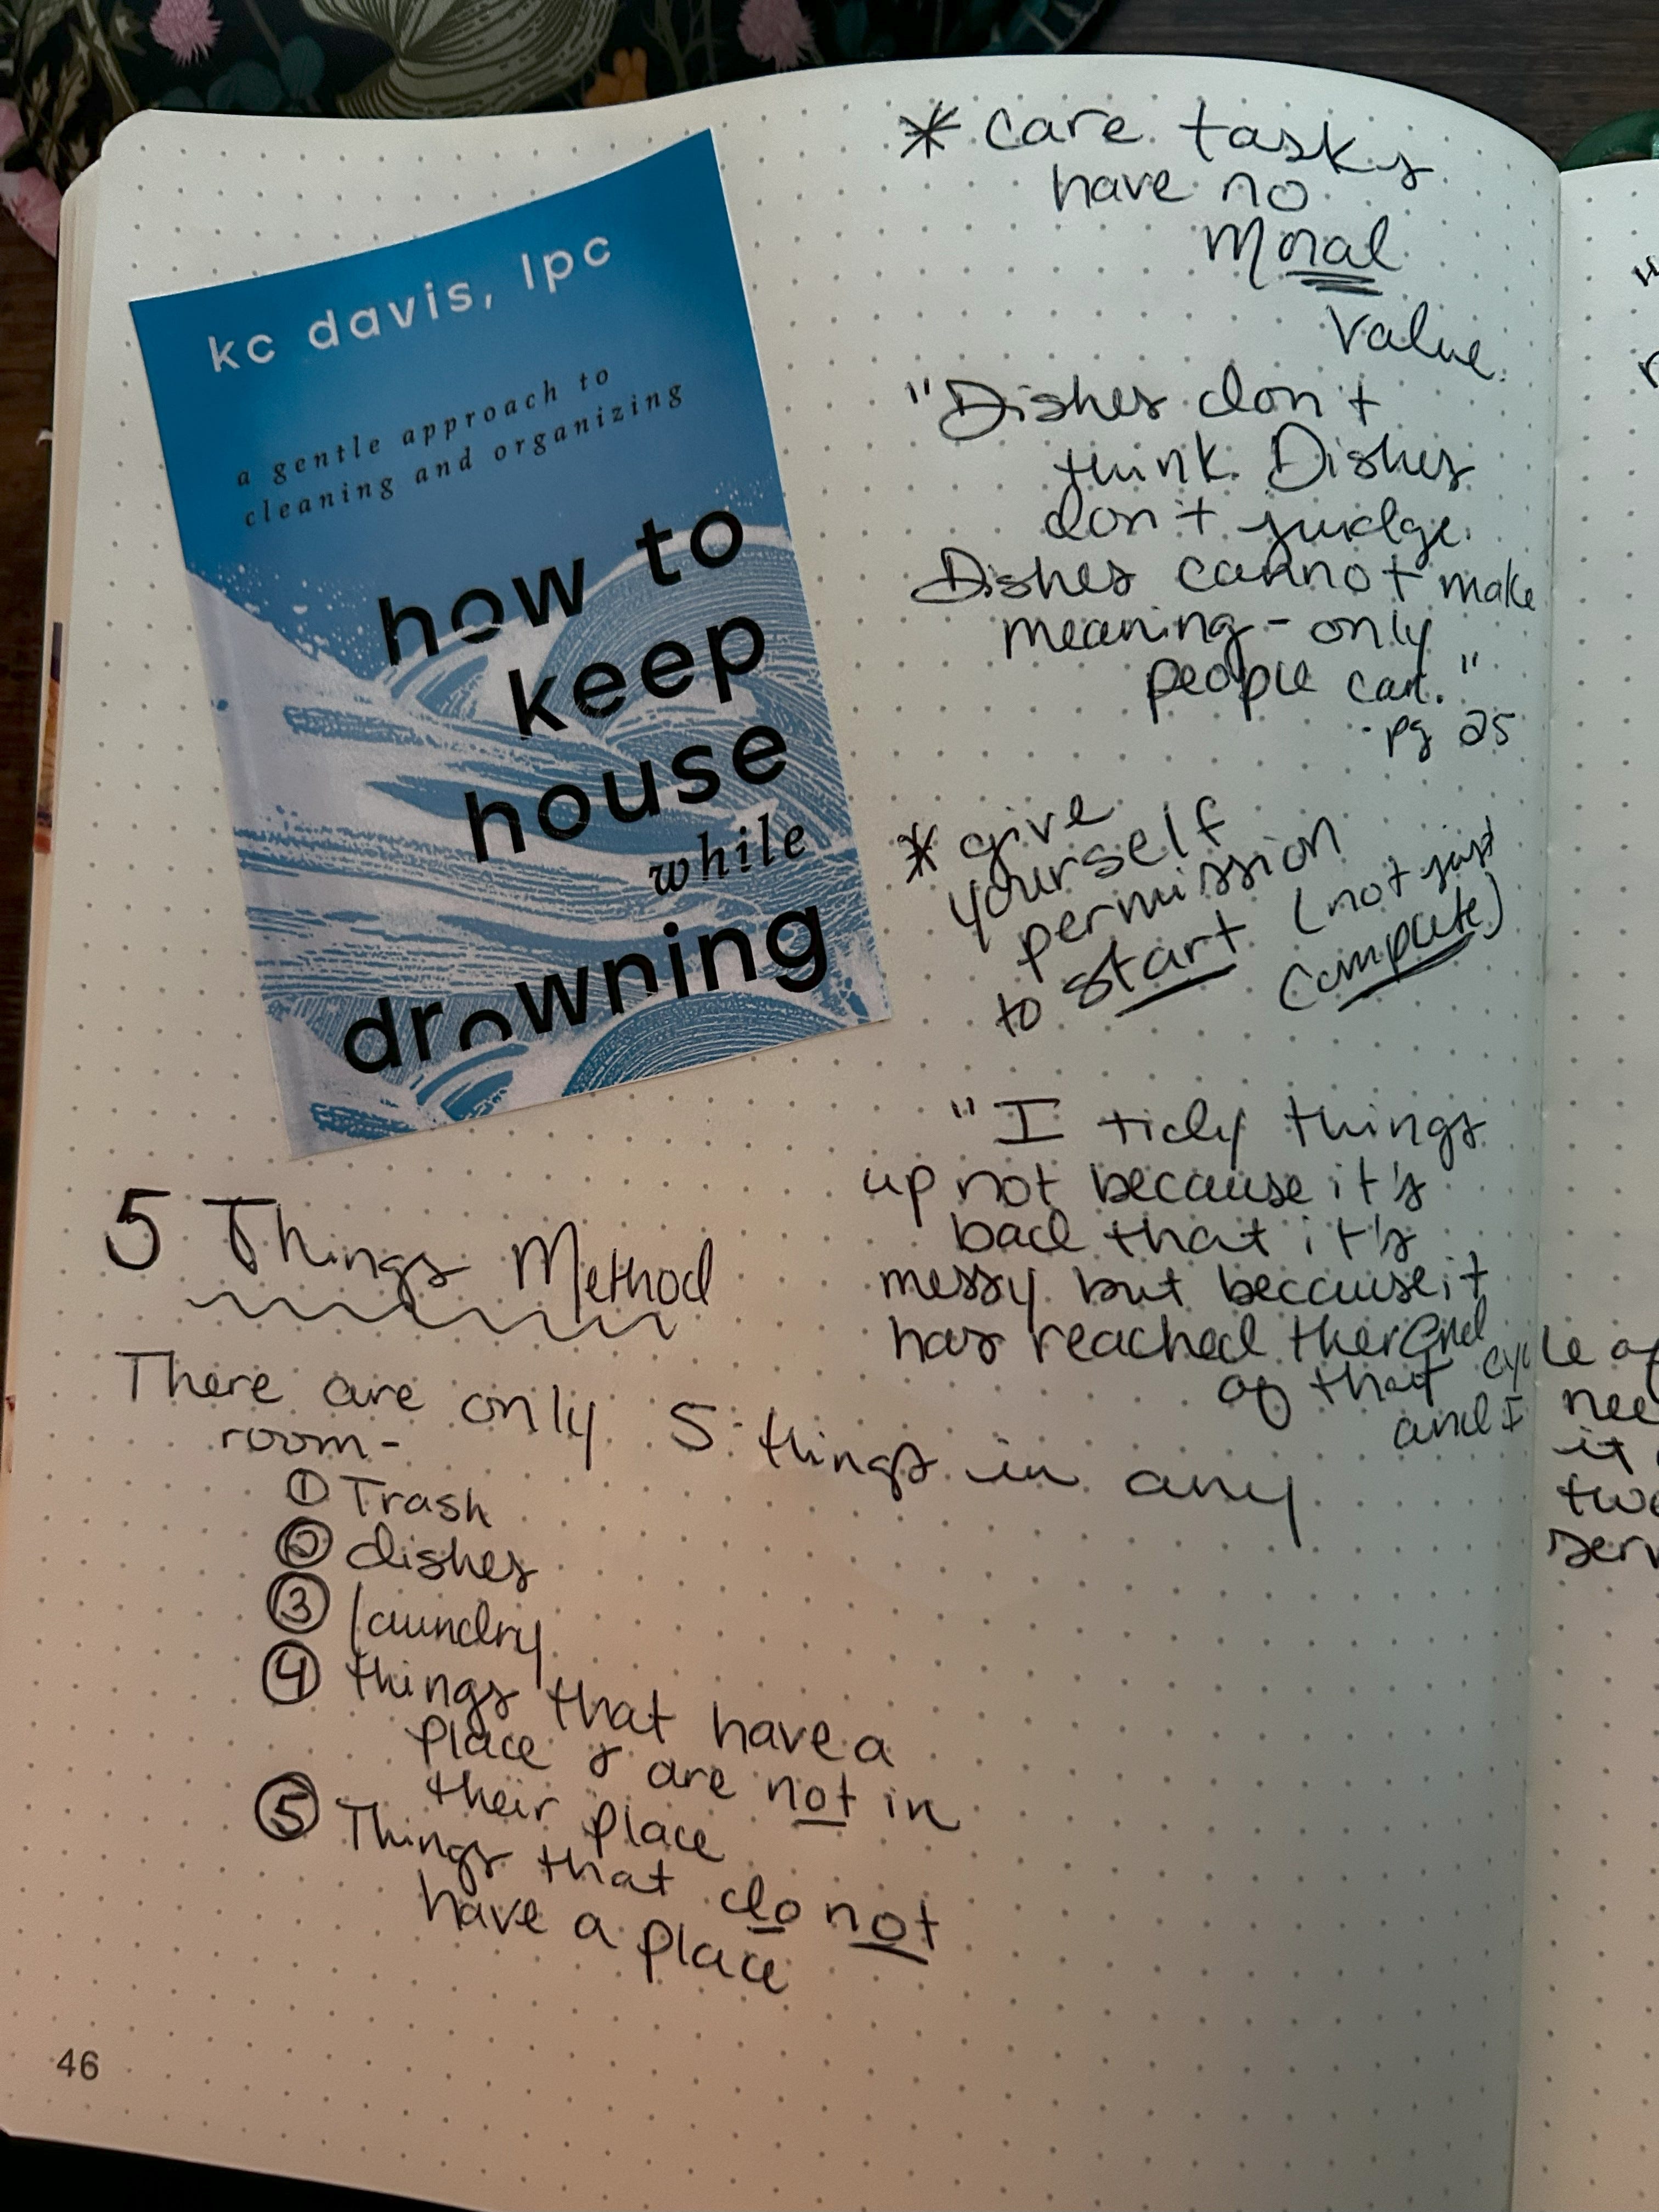 kc davis, lpc
a gentle approach to
cleaning and organizing
how to
keep
house
while
drowning
* care tasks
have no
Moral
Value.
"Dishes don't
think. Dishes
don't judge.
Dishes cannot make
meaning - only
people can."
- pg 25
* give
yourself
permission
to start (not just
complete)
"I tidy things
up not because it's
bad that it's
messy but because it
has reached the end
of that cycle of
and I
it
5 Things Method
There are only 5 things in any
room-
① Trash
② dishes
③ laundry
④ things that have a
place & are not in
their place
⑤ Things that do not
have a place
46